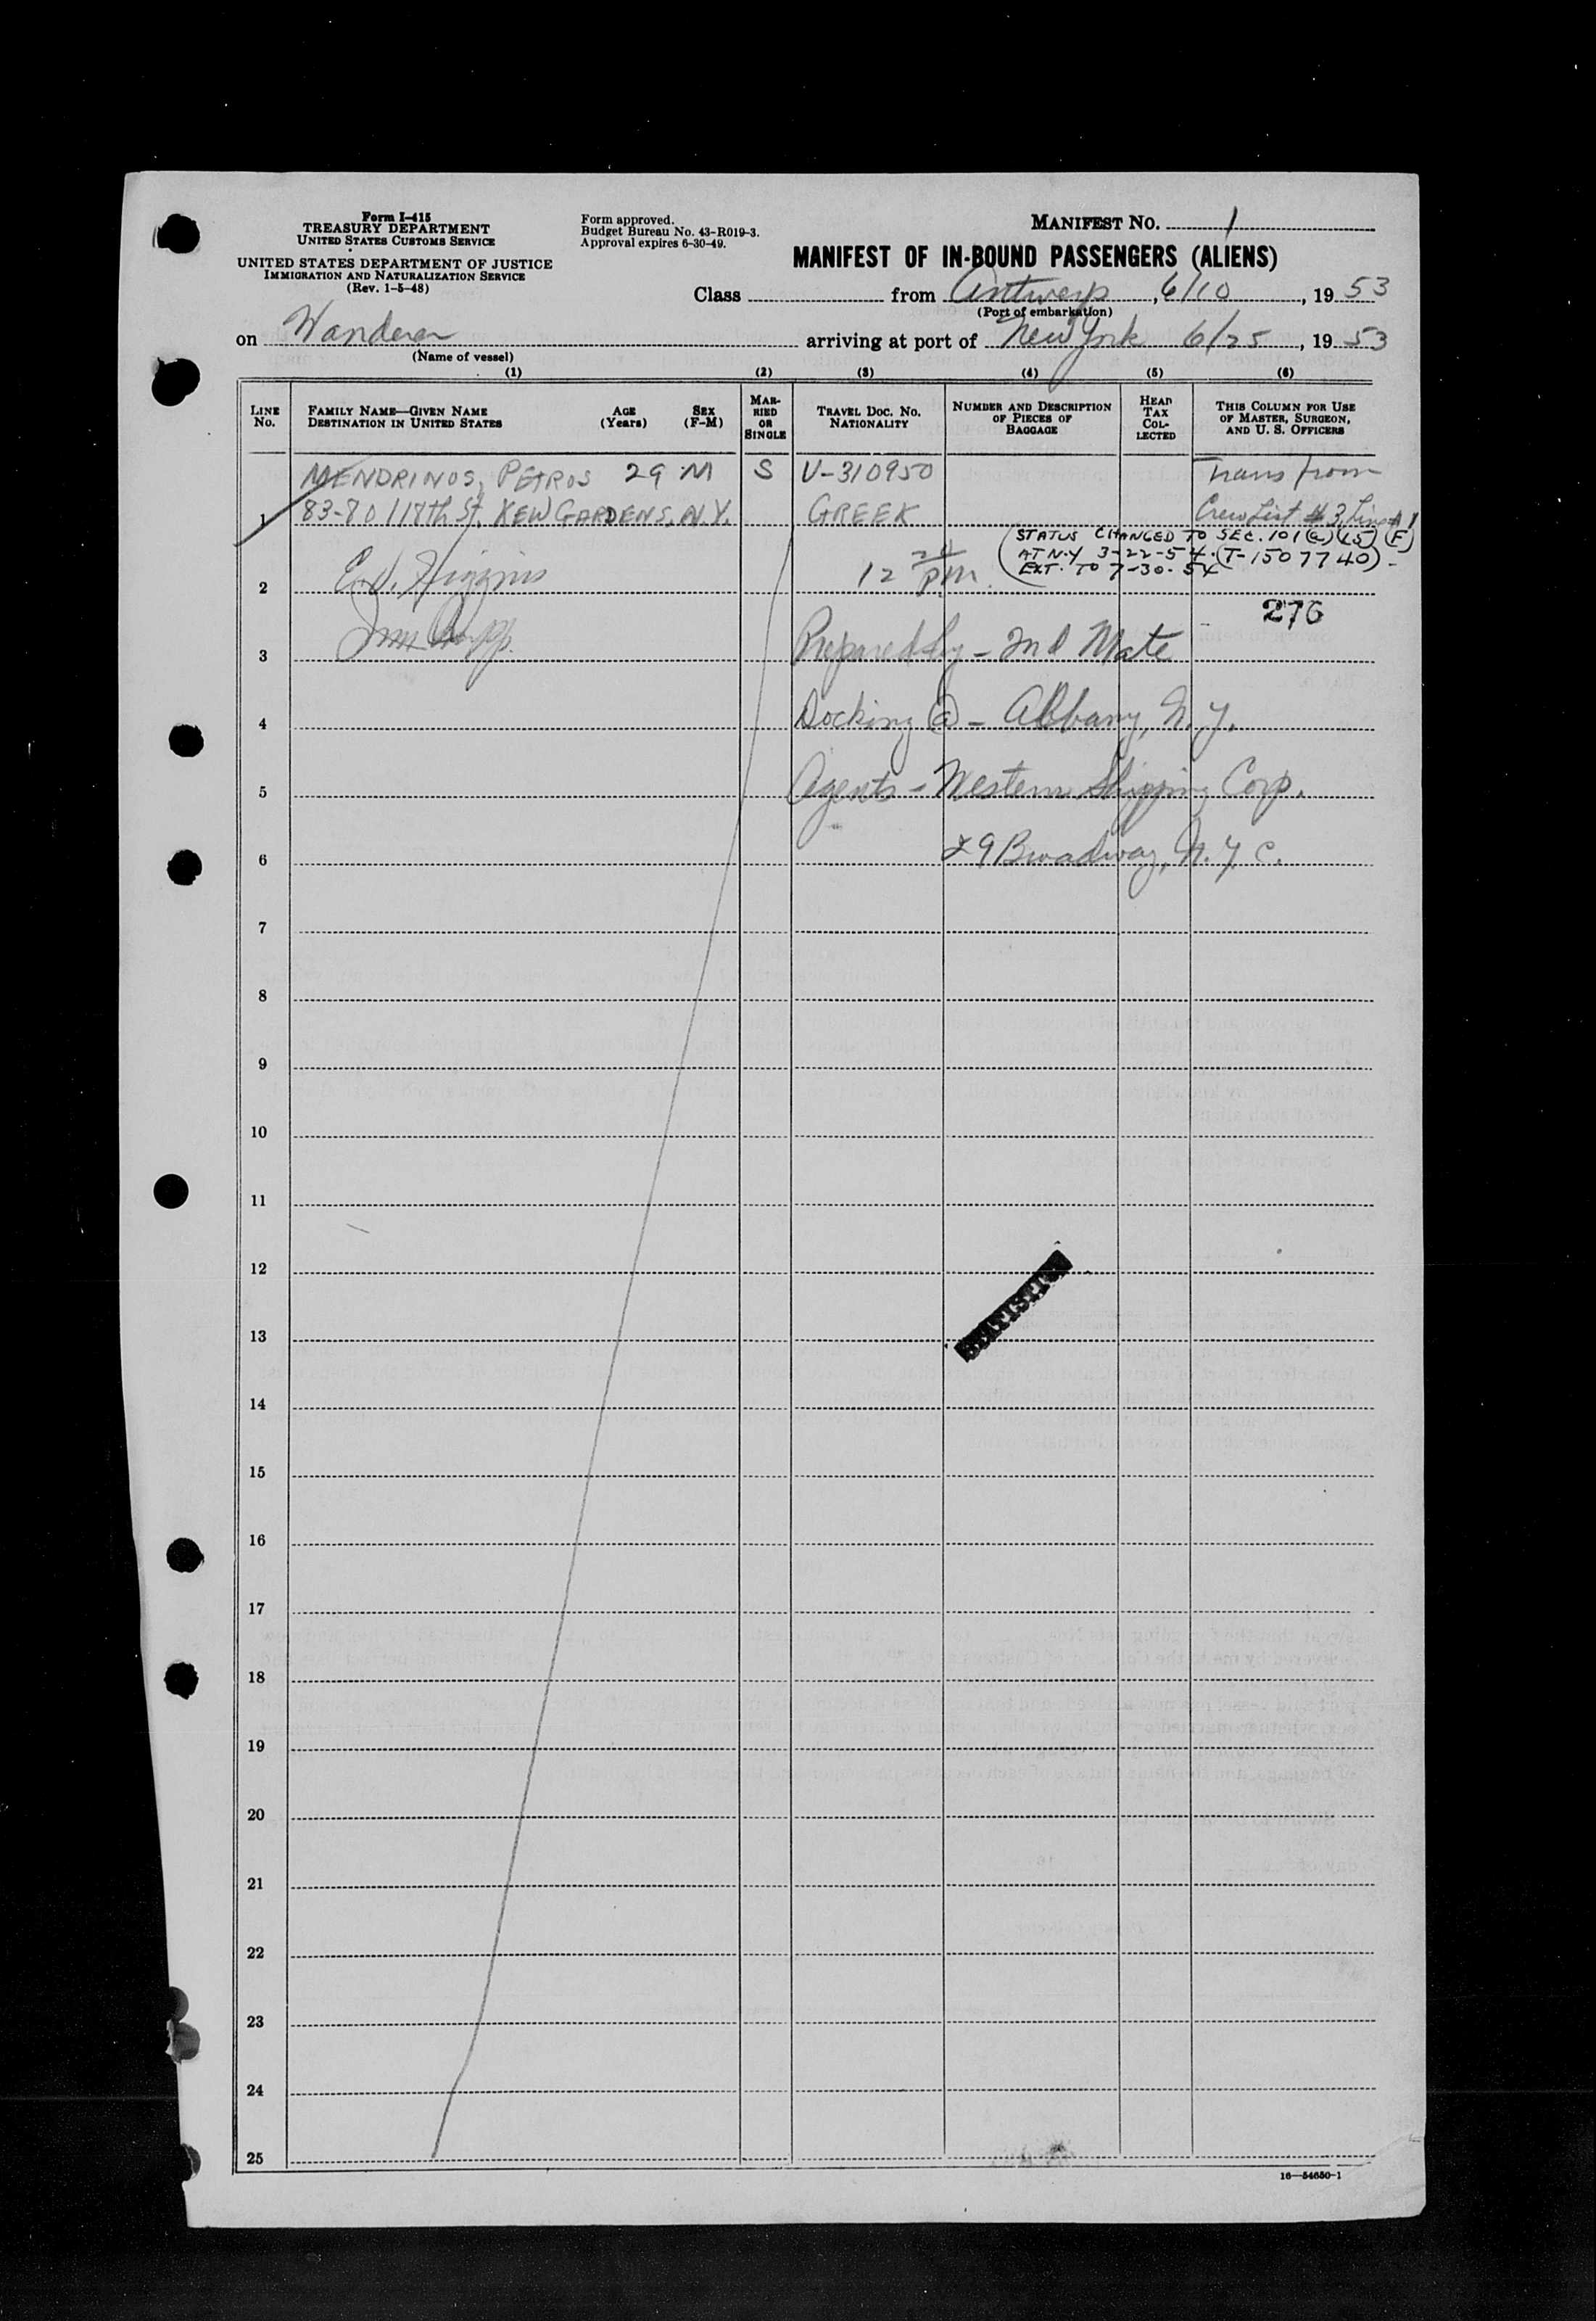 Form I-415
TREASURY DEPARTMENT
UNITED STATES CUSTOMS SERVICE
UNITED STATES DEPARTMENT OF JUSTICE
IMMIGRATION AND NATURALIZATION SERVICE
(Rev. 1-5-48)
Form approved.
Budget Bureau No. 43-R019-3.
Approval expires 6-30-49.
MANIFEST NO. 1
MANIFEST OF IN-BOUND PASSENGERS (ALIENS)
Class from Antwerp, 6/10, 19 53
(Port of embarkation)
on Wanderer arriving at port of New York 6/25, 19 53
(Name of vessel)
(1) (2) (3) (4) (5) (6)
LINE No.
FAMILY NAME—GIVEN NAME
DESTINATION IN UNITED STATES
AGE (Years)
SEX (F-M)
MARRIED OR SINGLE
TRAVEL DOC. NO. NATIONALITY
NUMBER AND DESCRIPTION OF PIECES OF BAGGAGE
HEAD TAX COLLECTED
THIS COLUMN FOR USE OF MASTER, SURGEON, AND U. S. OFFICERS
MENDRINOS, PETROS 29 M S V-310950 Trans from
1 83-80 118th St. KEW GARDENS, N.Y. GREEK Crew List #3, Line # 1
(STATUS CHANGED TO SEC. 101(a)(15)(F)
AT N.Y 3-22-54. (T-1507740) -
EXT. TO 7-30-54
2 E.J. Higgins 12 PM
276
3 Prepared by - 2nd Mate
4 Docking @ - Albany, N.Y.
5 Agents - Western Shipping Corp.
6 29 Broadway, N.Y.C.
7
8
9
10
11
12
13
14
15
16
17
18
19
20
21
22
23
24
25
16—54650-1